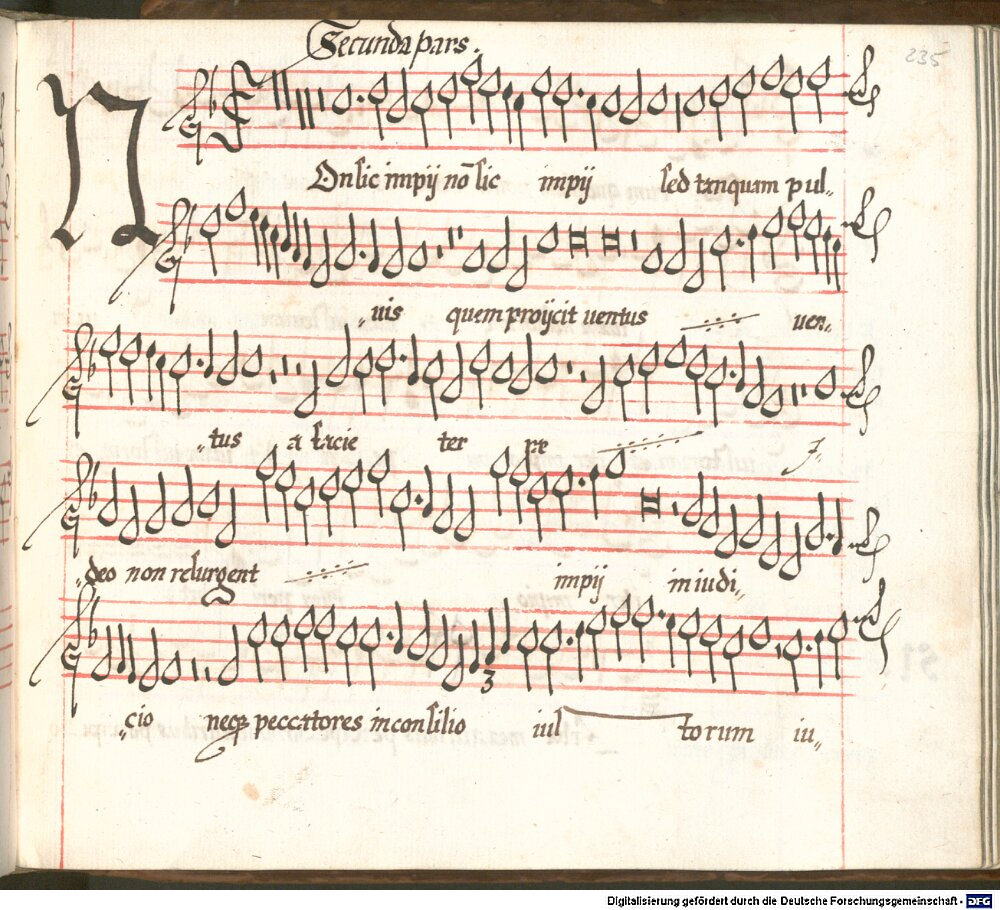 Secunda pars.
235
NOn sic impij nō sic impij sed tanquam pul„
„uis quem proijcit uentus uen„
„tus a facie ter re J„
„deo non resurgent impij in iudi„
„cio neqꝫ peccatores in consilio ius torum iu„
3
Digitalisierung gefördert durch die Deutsche Forschungsgemeinschaft - DFG